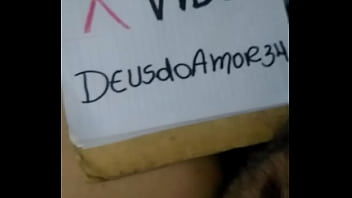 X VID
DEUSdoAmoR34